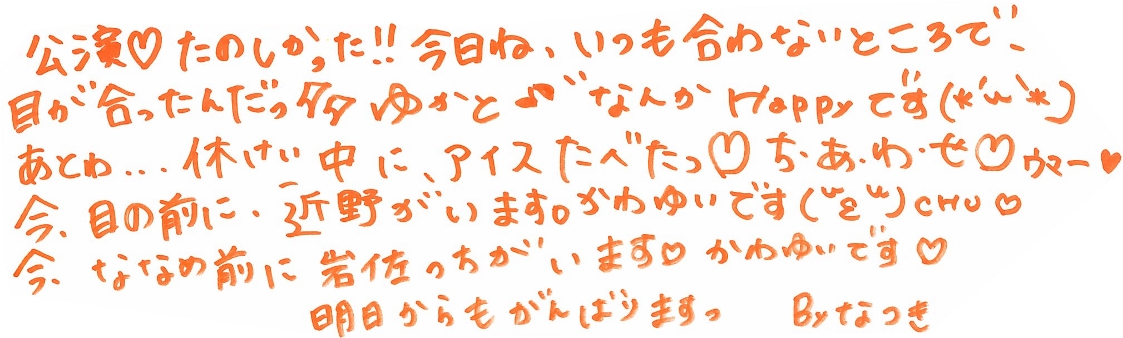 公演♡たのしかった!!今日ね、いつも合わないところで、
目が合ったんだっ夕夕ゆかと♪"なんかHappyです(*´ω`*)
あとわ...休けい中に、アイスたべたっ♡ち・あ・わ・せ♡ウマー♥
今、目の前に、近野がいます。かわゆいです(˘ε˘)CHU♡
今、ななめ前に岩佐っちがいます♡かわゆいです♡
明日からもがんばりますっ Byなつき